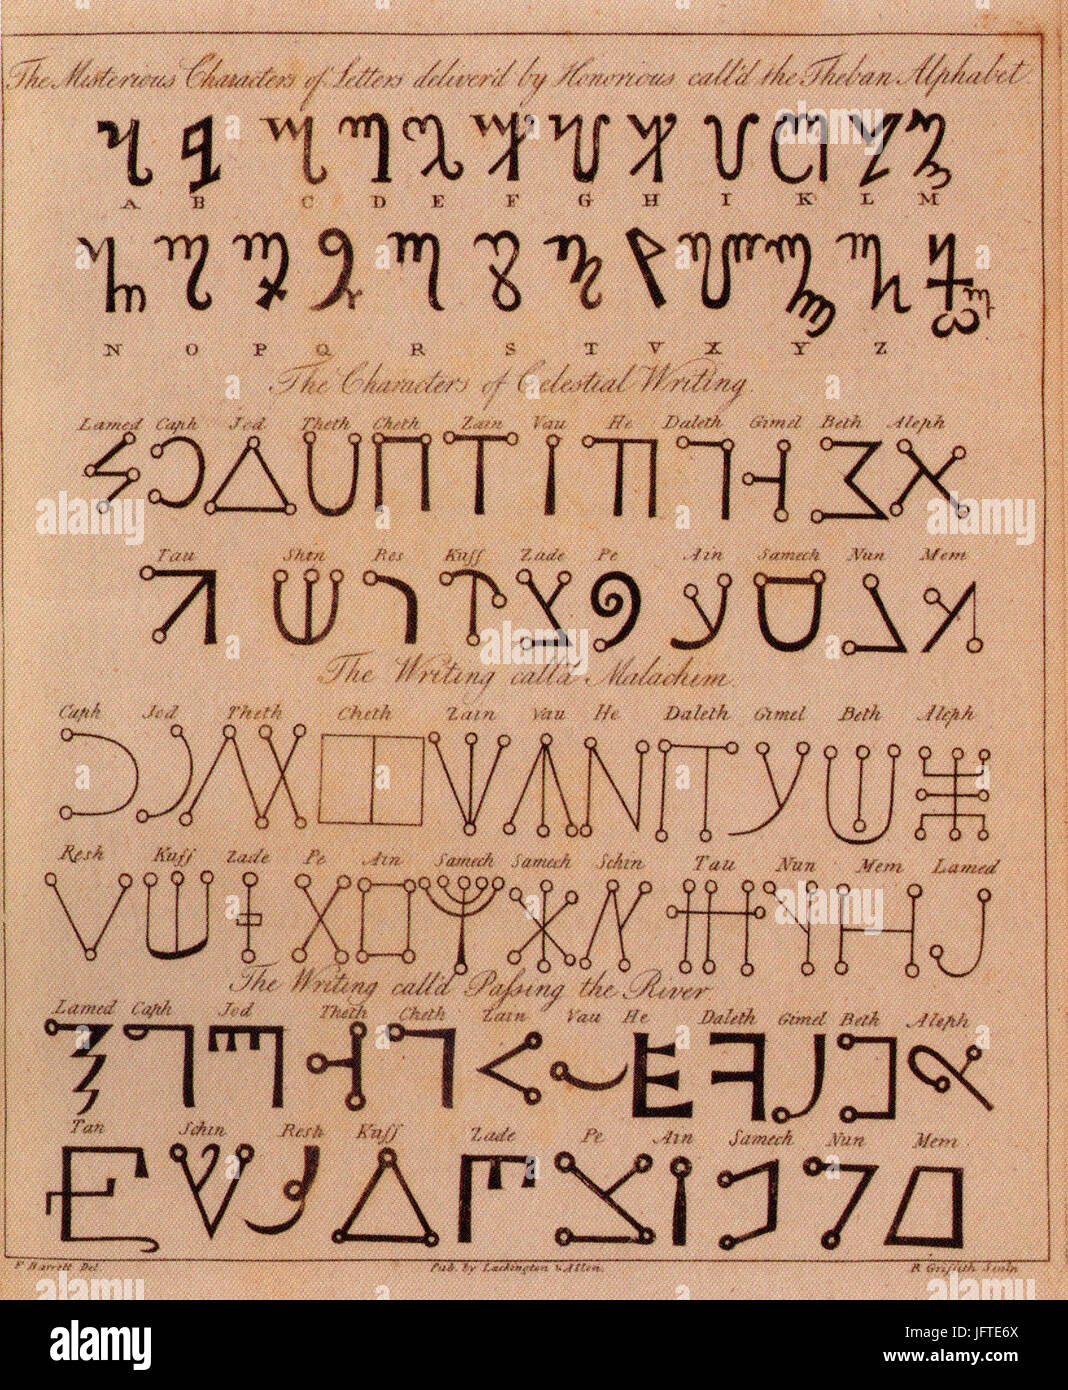 The Misterious Characters of Letters deliver'd by Honorious call'd the Theban Alphabet
A B C D E F G H I K L M
N O P Q R S T V X Y Z
The Characters of Celestial Writing.
Lamed Caph Jod Theth Cheth Zain Vau He Daleth Gimel Beth Aleph
Tau Shin Res Kuff Zade Pe Ain Samech Nun Mem
The Writing call'd Malachim.
Caph Jod Theth Cheth Zain Vau He Daleth Gimel Beth Aleph
Resh Kuff Zade Pe Ain Samech Samech Schin Tau Nun Mem Lamed
The Writing call'd Passing the River
Lamed Caph Jod Theth Cheth Zain Vau He Daleth Gimel Beth Aleph
Tau Schin Resh Kuff Zade Pe Ain Samech Nun Mem.
F Barrett Del. Pub. by Lackington & Allen. R Griffith Sculp
alamy stock photo
alamy
Image ID: JFTE6X
www.alamy.com